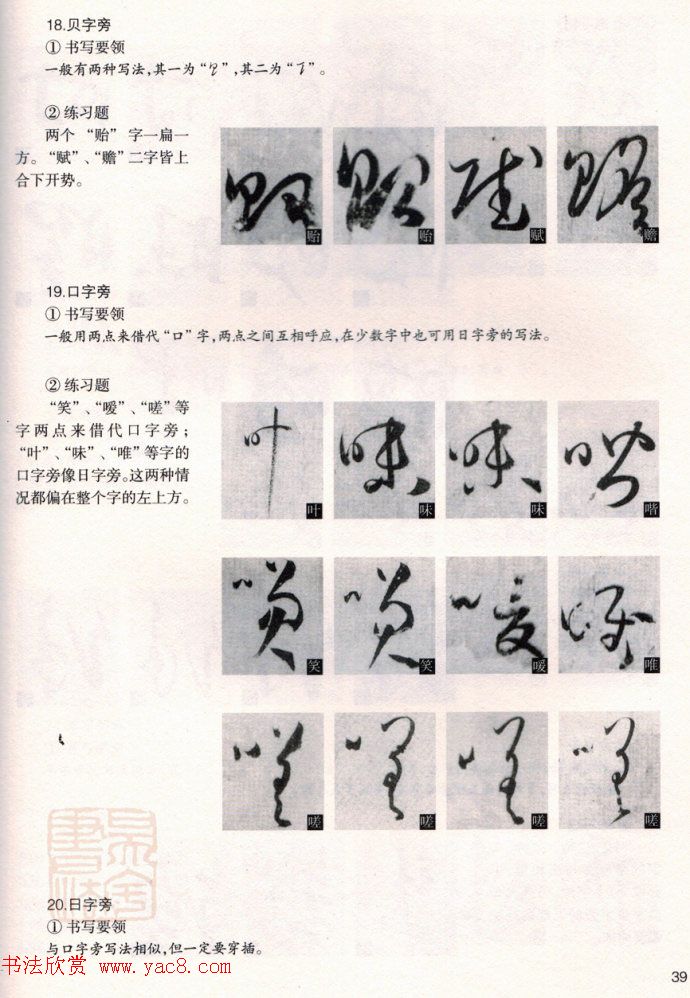 18.贝字旁
① 书写要领
一般有两种写法,其一为“
”,其二为“
”。
② 练习题
两个“贻”字一扁一
方。“赋”、“赡”二字皆上
合下开势。
贻
贻
赋
赡
19.口字旁
① 书写要领
一般用两点来借代“口”字,两点之间互相呼应,在少数字中也可用日字旁的写法。
② 练习题
“笑”、“嗳”、“嗟”等
字两点来借代口字旁;
“叶”、“味”、“唯”等字的
口字旁像日字旁。这两种情
况都偏在整个字的左上方。
叶
味
味
喈
笑
笑
嗳
唯
嗟
嗟
嗟
嗟
20.日字旁
① 书写要领
与口字旁写法相似,但一定要穿插。
书法欣赏 www.yac8.com
39